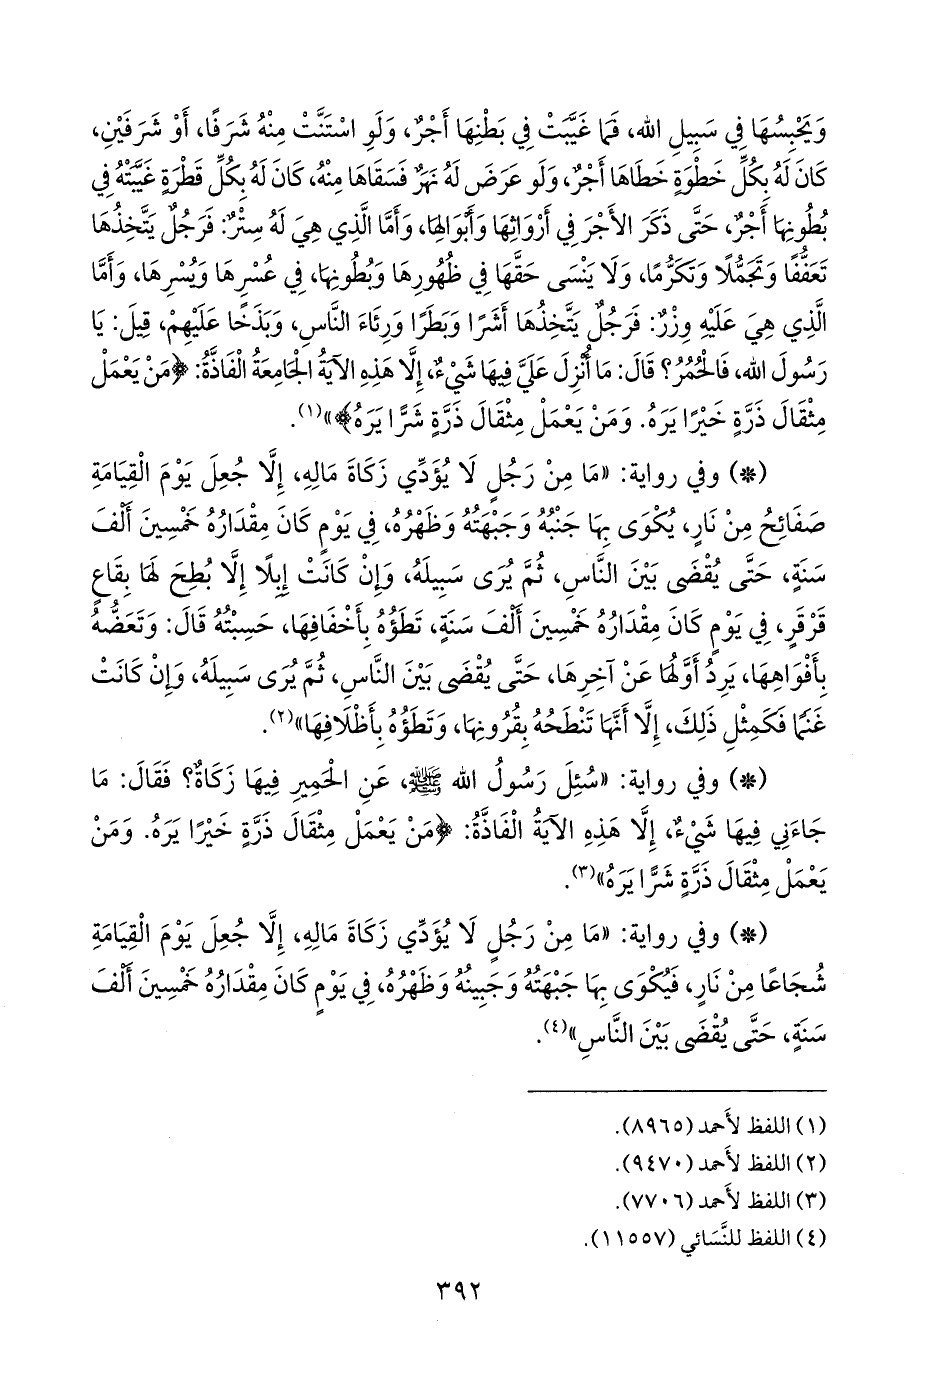 وَيَحْبِسُهَا فِي سَبِيلِ الله، فَمَا غَيَّبَتْ فِي بَطْنِهَا أَجْرٌ، وَلَوِ اسْتَنَّتْ مِنْهُ شَرَفًا، أَوْ شَرَفَيْنِ،
كَانَ لَهُ بِكُلِّ خَطْوَةٍ خَطَاهَا أَجْرٌ، وَلَو عَرَضَ لَهُ نَهَرٌ فَسَقَاهَا مِنْهُ، كَانَ لَهُ بِكُلِّ قَطْرَةٍ غَيَّبَتْهُ فِي
بُطُونِهَا أَجْرٌ، حَتَّى ذَكَرَ الأَجْرَ فِي أَرْوَاثِهَا وَأَبْوَالِهَا، وَأَمَّا الَّذِي هِيَ لَهُ سِتْرٌ: فَرَجُلٌ يَتَّخِذُهَا
تَعَفُّفًا وَتَجَمُّلًا وَتَكَرُّمًا، وَلَا يَنْسَى حَقَّهَا فِي ظُهُورِهَا وَبُطُونِهَا، فِي عُسْرِهَا وَيُسْرِهَا، وَأَمَّا
الَّذِي هِيَ عَلَيْهِ وِزْرٌ: فَرَجُلٌ يَتَّخِذُهَا أَشَرًا وَبَطَرًا وَرِئَاءَ النَّاسِ، وَبَذَخًا عَلَيْهِمْ، قِيلَ: يَا
رَسُولَ الله، فَالْحُمُرُ؟ قَالَ: مَا أُنْزِلَ عَلَيَّ فِيهَا شَيْءٌ، إِلَّا هَذِهِ الآيَةُ الْجَامِعَةُ الْفَاذَّةُ: ﴿مَنْ يَعْمَلْ
مِثْقَالَ ذَرَّةٍ خَيْرًا يَرَهُ. وَمَنْ يَعْمَلْ مِثْقَالَ ذَرَّةٍ شَرًّا يَرَهُ﴾»(١).
(*) وفي رواية: «مَا مِنْ رَجُلٍ لَا يُؤَدِّي زَكَاةَ مَالِهِ، إِلَّا جُعِلَ يَوْمَ الْقِيَامَةِ
صَفَائِحُ مِنْ نَارٍ، يُكْوَى بِهَا جَنْبُهُ وَجَبْهَتُهُ وَظَهْرُهُ، فِي يَوْمٍ كَانَ مِقْدَارُهُ خَمْسِينَ أَلْفَ
سَنَةٍ، حَتَّى يُقْضَى بَيْنَ النَّاسِ، ثُمَّ يُرَى سَبِيلَهُ، وَإِنْ كَانَتْ إِبِلًا إِلَّا بُطِحَ لَهَا بِقَاعٍ
قَرْقَرٍ، فِي يَوْمٍ كَانَ مِقْدَارُهُ خَمْسِينَ أَلْفَ سَنَةٍ، تَطَؤُهُ بِأَخْفَافِهَا، حَسِبْتُهُ قَالَ: وَتَعَضُّهُ
بِأَفْوَاهِهَا، يَرِدُ أَوَّلُهَا عَنْ آخِرِهَا، حَتَّى يُقْضَى بَيْنَ النَّاسِ، ثُمَّ يُرَى سَبِيلَهُ، وَإِنْ كَانَتْ
غَنَمًا فَكَمِثْلِ ذَلِكَ، إِلَّا أَنَّهَا تَنْطَحُهُ بِقُرُونِهَا، وَتَطَؤُهُ بِأَظْلَافِهَا»(٢).
(*) وفي رواية: «سُئِلَ رَسُولُ الله ﷺ، عَنِ الْحَمِيرِ فِيهَا زَكَاةٌ؟ فَقَالَ: مَا
جَاءَنِي فِيهَا شَيْءٌ، إِلَّا هَذِهِ الآيَةُ الْفَاذَّةُ: ﴿مَنْ يَعْمَلْ مِثْقَالَ ذَرَّةٍ خَيْرًا يَرَهُ. وَمَنْ
يَعْمَلْ مِثْقَالَ ذَرَّةٍ شَرًّا يَرَهُ»(٣).
(*) وفي رواية: «مَا مِنْ رَجُلٍ لَا يُؤَدِّي زَكَاةَ مَالِهِ، إِلَّا جُعِلَ يَوْمَ الْقِيَامَةِ
شُجَاعًا مِنْ نَارٍ، فَيُكْوَى بِهَا جَبْهَتُهُ وَجَبِينُهُ وَظَهْرُهُ، فِي يَوْمٍ كَانَ مِقْدَارُهُ خَمْسِينَ أَلْفَ
سَنَةٍ، حَتَّى يُقْضَى بَيْنَ النَّاسِ»(٤).
(١) اللفظ لأَحمد (٨٩٦٥).
(٢) اللفظ لأَحمد (٩٤٧٠).
(٣) اللفظ لأَحمد (٧٧٠٦).
(٤) اللفظ للنَّسَائي (١١٥٥٧).
٣٩٢